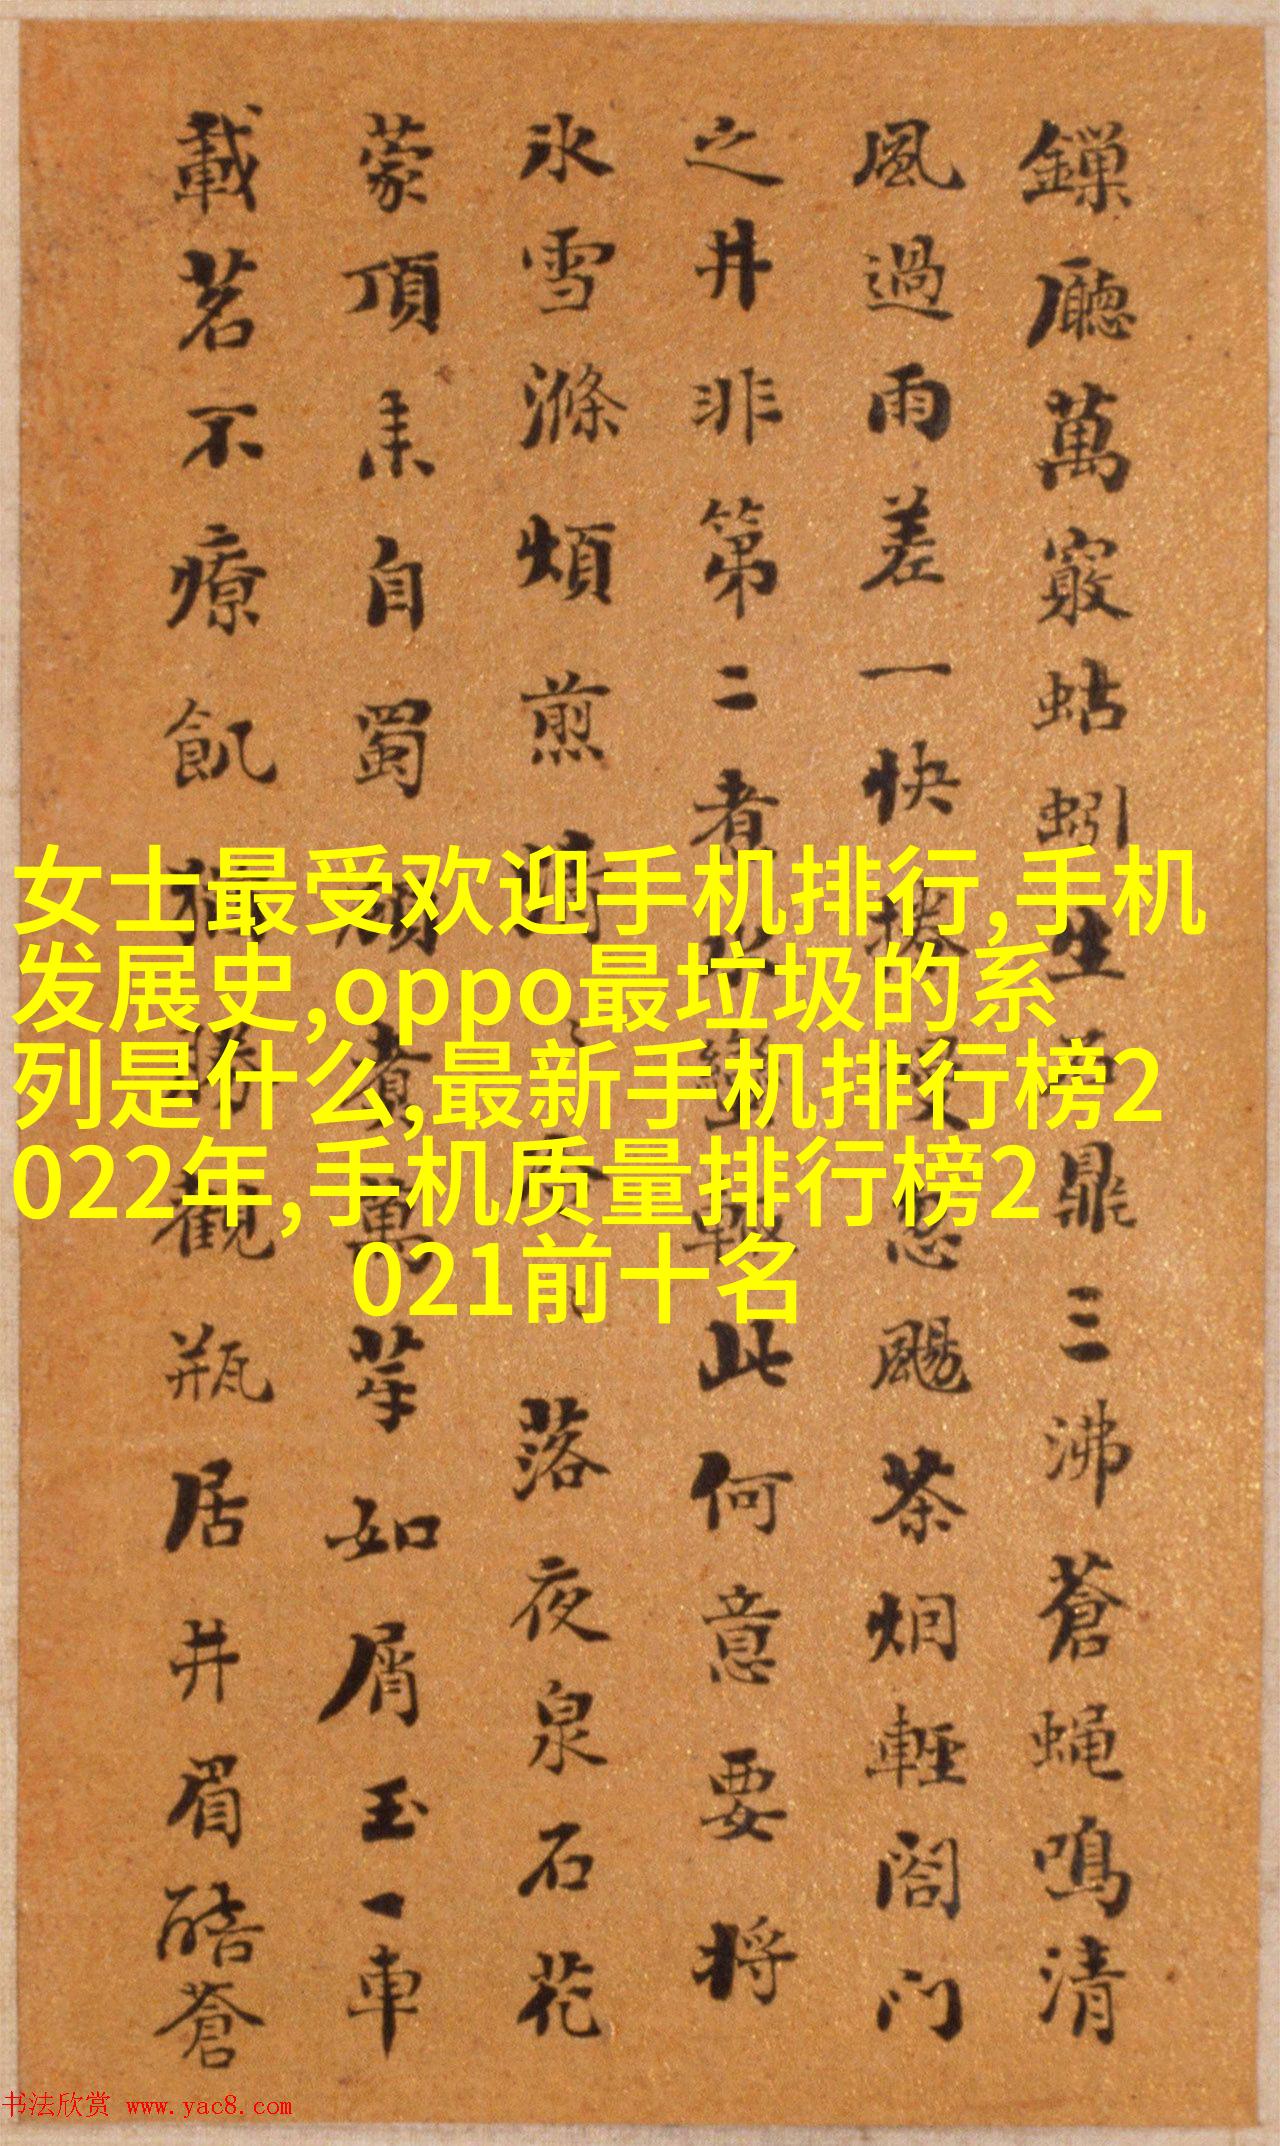 鏁廳萬竅蛄蚓生鼎三沸蒼蠅鳴清
風過雨差一快忽颺茶烟輕閤门
之井非第二者此何意要将
氷雪滌煩煎落夜泉石花
蒙頂来自蜀萬芽如屑玉一車
載茗不療飢觀瓶居井眉酷蒼
女士最受欢迎手机排行,手机
发展史,oppo最垃圾的系
列是什么,最新手机排行榜2
022年,手机质量排行榜2
021前十名
书法欣赏 www.yac8.com